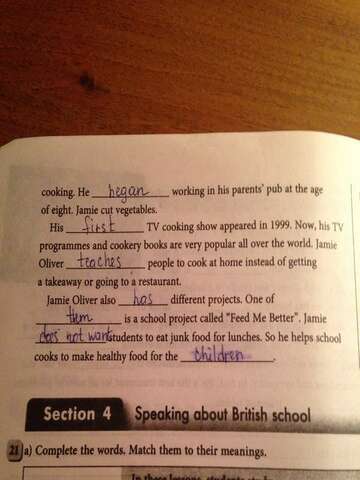 cooking. He began working in his parents' pub at the age
of eight. Jamie cut vegetables.
His first TV cooking show appeared in 1999. Now, his TV
programmes and cookery books are very popular all over the world. Jamie
Oliver teaches people to cook at home instead of getting
a takeaway or going to a restaurant.
Jamie Oliver also has different projects. One of
them is a school project called "Feed Me Better". Jamie
does not want students to eat junk food for lunches. So he helps school
cooks to make healthy food for the children.
Section 4 Speaking about British school
21 a) Complete the words. Match them to their meanings.
In these lessons, students